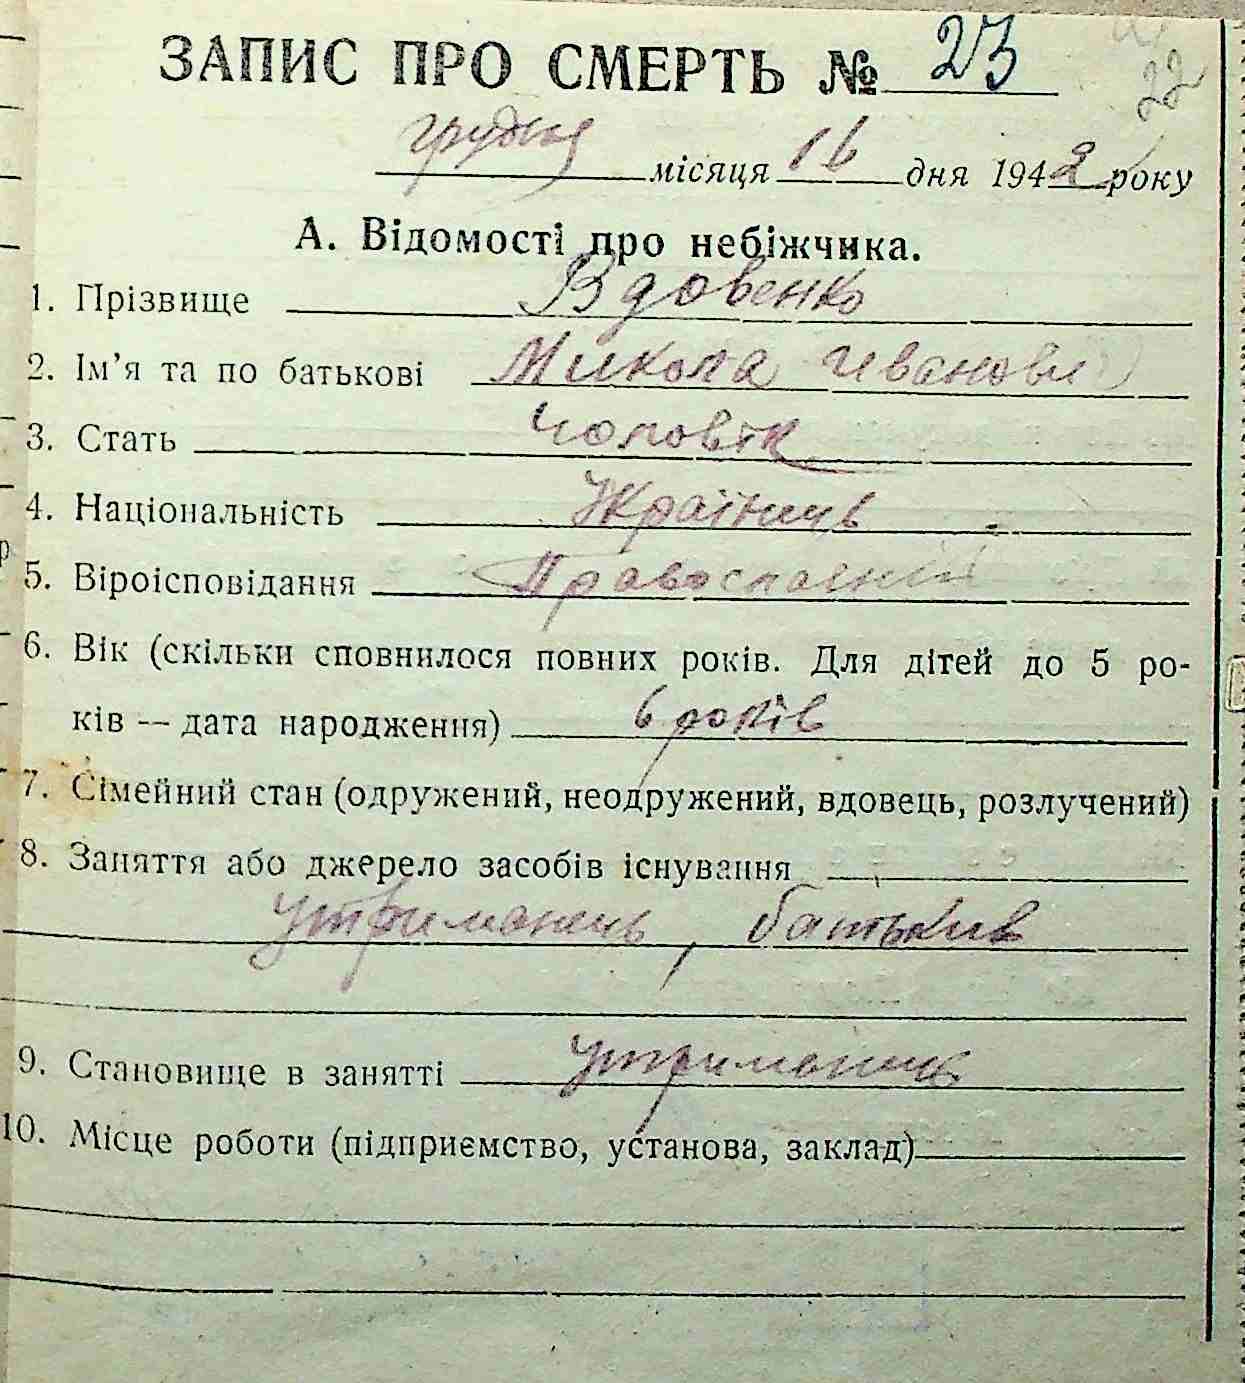 ЗАПИС ПРО СМЕРТЬ № 23
22
грудня місяця 16 дня 1942 року
А. Відомості про небіжчика.
1. Прізвище Вдовенко
2. Ім’я та по батькові Микола Іванови
3. Стать чоловік
4. Національність Українець
5. Віроісповідання Православний
6. Вік (скільки сповнилося повних років. Для дітей до 5 ро-
ків — дата народження) 6 років
7. Сімейний стан (одружений, неодружений, вдовець, розлучений)
8. Заняття або джерело засобів існування
утриманець, батьків
9. Становище в занятті утриманец
10. Місце роботи (підприємство, установа, заклад)